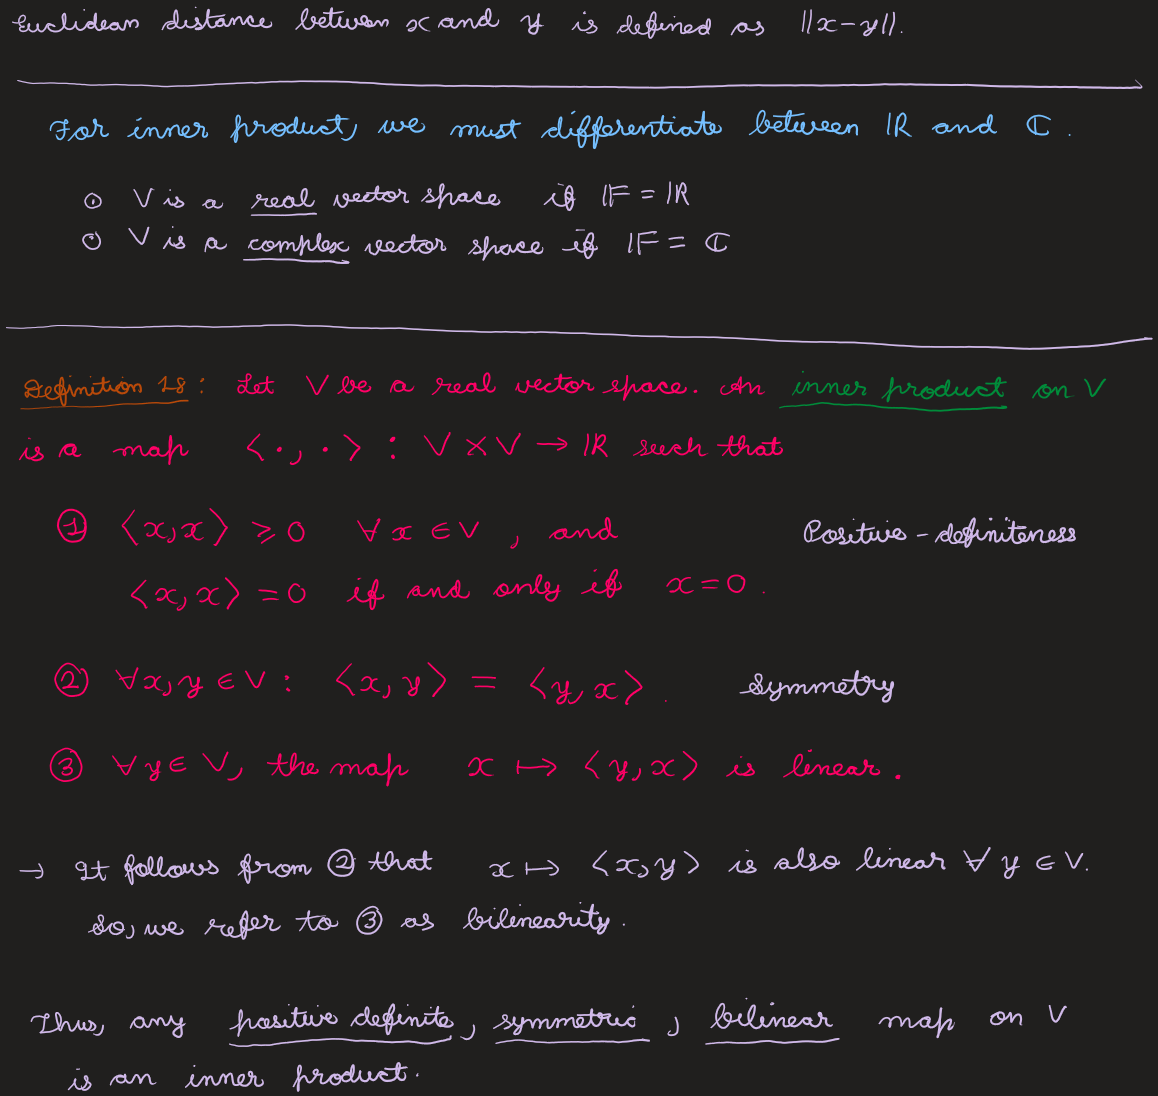 Euclidean distance between x and y is defined as ||x-y||.
For inner product, we must differentiate between ℝ and ℂ.
⊙ V is a real vector space if 𝔽 = ℝ
⊙ V is a complex vector space if 𝔽 = ℂ
Definition 18: Let V be a real vector space. An inner product on V
is a map ⟨·,·⟩ : V × V → ℝ such that
① ⟨x,x⟩ ⩾ 0 ∀ x ∈ V, and Positive-definiteness
⟨x,x⟩ = 0 if and only if x = 0.
② ∀x,y ∈ V: ⟨x,y⟩ = ⟨y,x⟩. Symmetry
③ ∀y ∈ V, the map x ↦ ⟨y,x⟩ is linear.
→ It follows from ② that x ↦ ⟨x,y⟩ is also linear ∀ y ∈ V.
So, we refer to ③ as bilinearity.
Thus, any positive definite, symmetric, bilinear map on V
is an inner product.